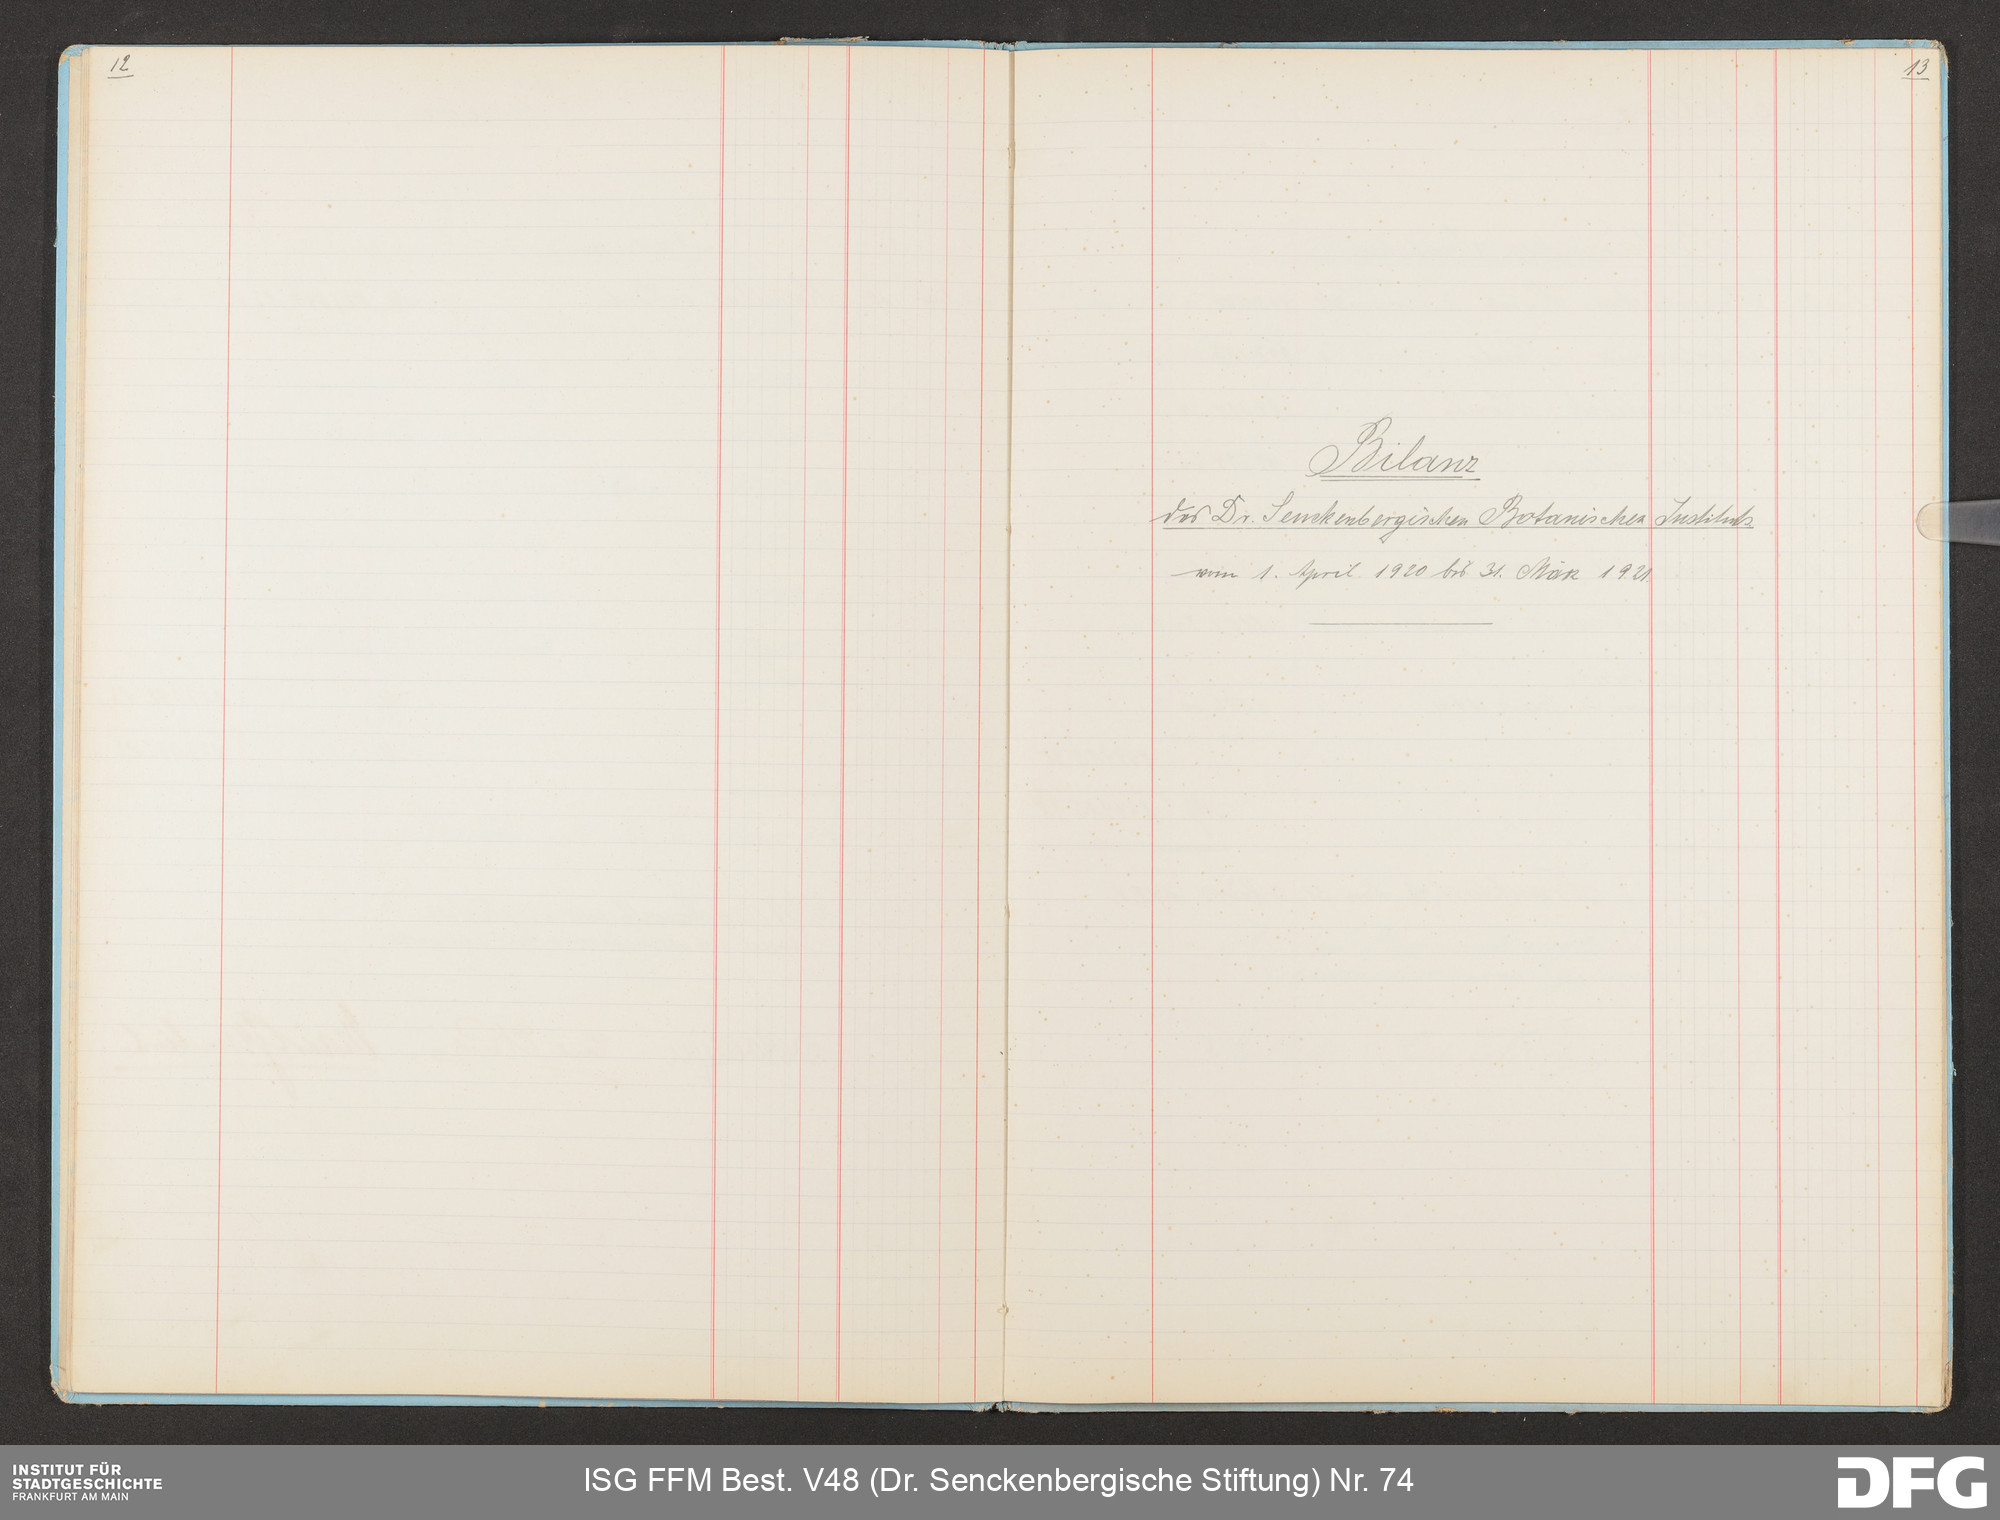 12
13
Bilanz
des Dr. Senckenbergischen Botanischen Instituts
vom 1. April 1920 bis 31. März 1921.
INSTITUT FÜR
STADTGESCHICHTE
FRANKFURT AM MAIN
ISG FFM Best. V48 (Dr. Senckenbergische Stiftung) Nr. 74
DFG